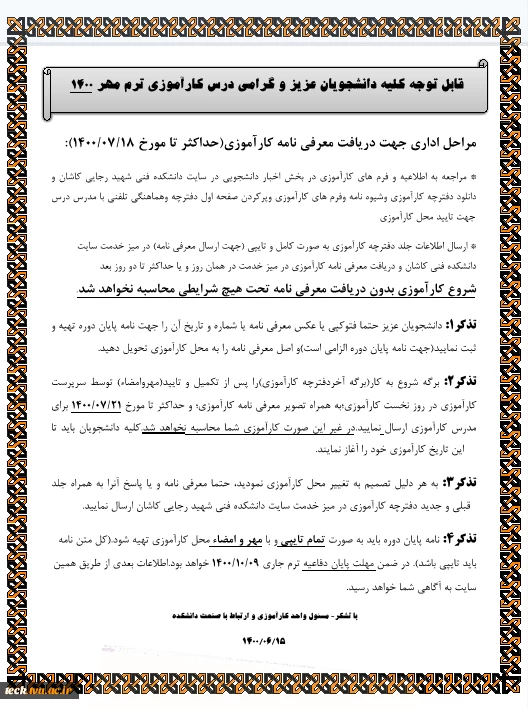 قابل توجه کلیه دانشجویان عزیز و گرامی درس کارآموزی ترم مهر ۱۴۰۰
مراحل اداری جهت دریافت معرفی نامه کارآموزی(حداکثر تا مورخ ۱۴۰۰/۰۷/۱۸):
* مراجعه به اطلاعیه و فرم های کارآموزی در بخش اخبار دانشجویی در سایت دانشکده فنی شهید رجایی کاشان و
دانلود دفترچه کارآموزی وشیوه نامه وفرم های کارآموزی وپرکردن صفحه اول دفترچه وهماهنگی تلفنی با مدرس درس
جهت تایید محل کارآموزی
* ارسال اطلاعات جلد دفترچه کارآموزی به صورت کامل و تایپی (جهت ارسال معرفی نامه) در میز خدمت سایت
دانشکده فنی کاشان و دریافت معرفی نامه کارآموزی در میز خدمت در همان روز و یا حداکثر تا دو روز بعد
شروع کارآموزی بدون دریافت معرفی نامه تحت هیچ شرایطی محاسبه نخواهد شد.
تذکر۱: دانشجویان عزیز حتما فتوکپی یا عکس معرفی نامه یا شماره و تاریخ آن را جهت نامه پایان دوره تهیه و
ثبت نمایید(جهت نامه پایان دوره الزامی است)و اصل معرفی نامه را به محل کارآموزی تحویل دهید.
تذکر۲: برگه شروع به کار(برگه آخردفترچه کارآموزی)را پس از تکمیل و تایید(مهروامضاء) توسط سرپرست
کارآموزی در روز نخست کارآموزی؛به همراه تصویر معرفی نامه کارآموزی؛ و حداکثر تا مورخ ۱۴۰۰/۰۷/۲۱ برای
مدرس کارآموزی ارسال نمایید.در غیر این صورت کارآموزی شما محاسبه نخواهد شد.کلیه دانشجویان باید تا
این تاریخ کارآموزی خود را آغاز نمایند.
تذکر۳: به هر دلیل تصمیم به تغییر محل کارآموزی نمودید، حتما معرفی نامه و یا پاسخ آنرا به همراه جلد
قبلی و جدید دفترچه کارآموزی در میز خدمت سایت دانشکده فنی شهید رجایی کاشان ارسال نمایید.
تذکر۴: نامه پایان دوره باید به صورت تمام تایپی و با مهر و امضاء محل کارآموزی تهیه شود.(کل متن نامه
باید تایپی باشد). در ضمن مهلت پایان دفاعیه ترم جاری ۱۴۰۰/۱۰/۰۹ خواهد بود.اطلاعات بعدی از طریق همین
سایت به آگاهی شما خواهد رسید.
با تشکر- مسئول واحد کارآموزی و ارتباط با صنعت دانشکده
۱۴۰۰/۰۶/۱۵
teck.tvu.ac.ir